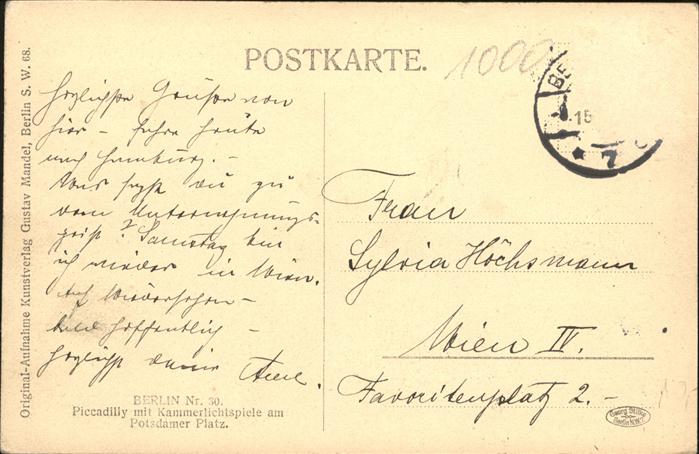 POSTKARTE.
1000
Original-Aufnahme Kunstverlag Gustav Mandel, Berlin S. W. 68.
Herzlichste Grüsse von
hier – fahre heute
nach Hamburg. –
Was sagst du zu
dem Unternehmungs-
geist? Samstag bin
ich wieder in Wien.
Auf Wiedersehen –
bald hoffentlich –
herzlichst deine
BERLIN Nr. 30.
Piccadilly mit Kammerlichtspiele am
Potsdamer Platz.
BE
15
* 7
Frau
Sylvia Höchsmann
Wien IV.
Favoritenplatz 2. –
Georg Stilke
Berlin N.W.7